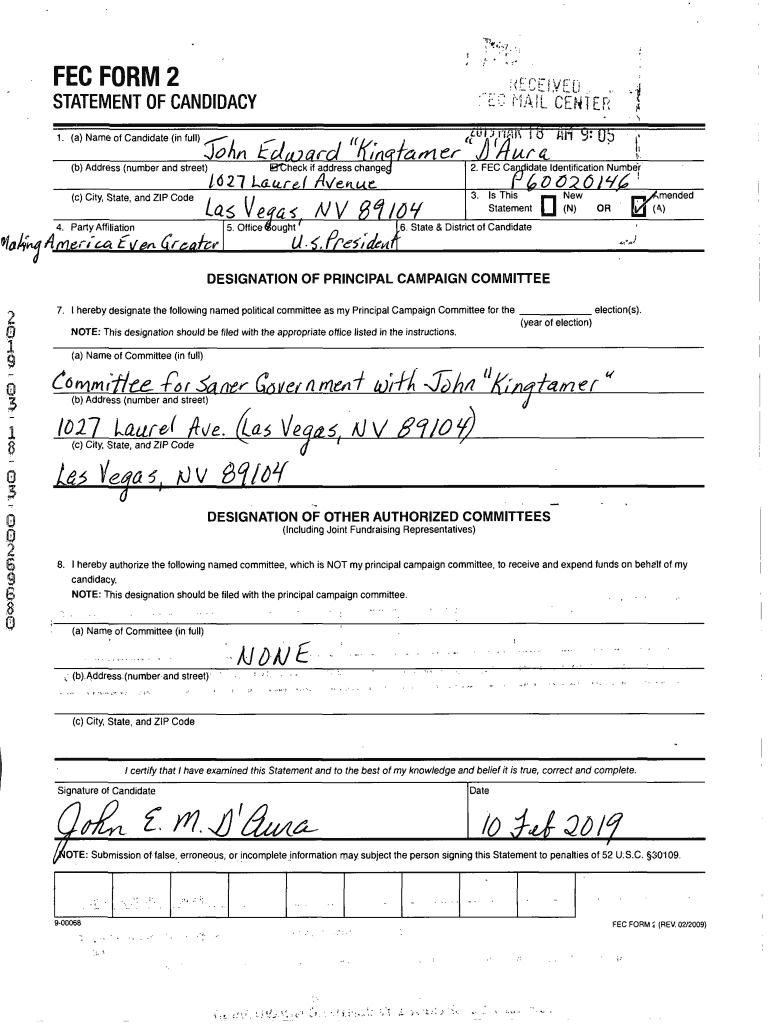 FEC FORM 2
STATEMENT OF CANDIDACY
RECEIVED
FEC MAIL CENTER
2019 MAR 18 AM 9:05
1. (a) Name of Candidate (in full)
John Edward "Kingtamer" D'Aura
(b) Address (number and street) Check if address changed
1027 Laurel Avenue
2. FEC Candidate Identification Number
P60020146
(c) City, State, and ZIP Code
Las Vegas, NV 89104
3. Is This Statement New (N) OR Amended (A)
4. Party Affiliation
Making America Even Greater
5. Office Sought
U.S. President
6. State & District of Candidate
DESIGNATION OF PRINCIPAL CAMPAIGN COMMITTEE
7. I hereby designate the following named political committee as my Principal Campaign Committee for the ____________ election(s).
(year of election)
NOTE: This designation should be filed with the appropriate office listed in the instructions.
(a) Name of Committee (in full)
Committee for Saner Government with John "Kingtamer"
(b) Address (number and street)
1027 Laurel Ave. (Las Vegas, NV 89104)
(c) City, State, and ZIP Code
Las Vegas, NV 89104
DESIGNATION OF OTHER AUTHORIZED COMMITTEES
(Including Joint Fundraising Representatives)
8. I hereby authorize the following named committee, which is NOT my principal campaign committee, to receive and expend funds on behalf of my
candidacy.
NOTE: This designation should be filed with the principal campaign committee.
(a) Name of Committee (in full)
NONE
(b) Address (number and street)
(c) City, State, and ZIP Code
I certify that I have examined this Statement and to the best of my knowledge and belief it is true, correct and complete.
Signature of Candidate
John E. M. D'Aura
Date
10 Feb 2019
NOTE: Submission of false, erroneous, or incomplete information may subject the person signing this Statement to penalties of 52 U.S.C. §30109.
9-00068
FEC FORM 2 (REV. 02/2009)
2019-03-18-03-00269680